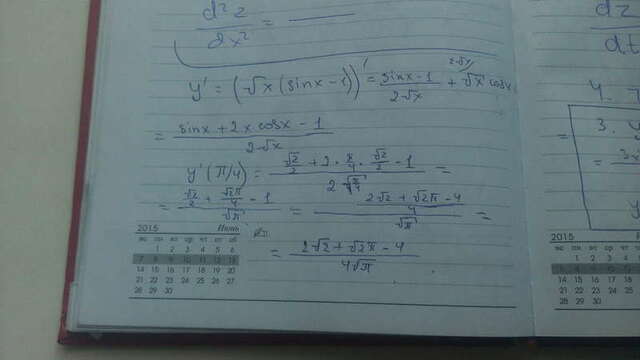 d²z / dx² = ——
y' = (√x (sinx - 1))' = (sinx - 1) / (2√x) + √x cosx
= (sinx + 2x cosx - 1) / (2√x)
y'(π/4) = (√2/2 + 2 · π/4 · √2/2 - 1) / (2√(π/4)) =
= (√2/2 + √2π/4 - 1) / √π = ((2√2 + √2π - 4) / 4) / √π =
= (2√2 + √2π - 4) / (4√π)
2015 Июнь
вс пн вт ср чт пт сб
1 2 3 4 5 6
7 8 9 10 11 12 13
14 15 16 17 18 19 20
21 22 23 24 25 26 27
28 29 30
dz
dt
4.
= 3.
2015
вс пн вт